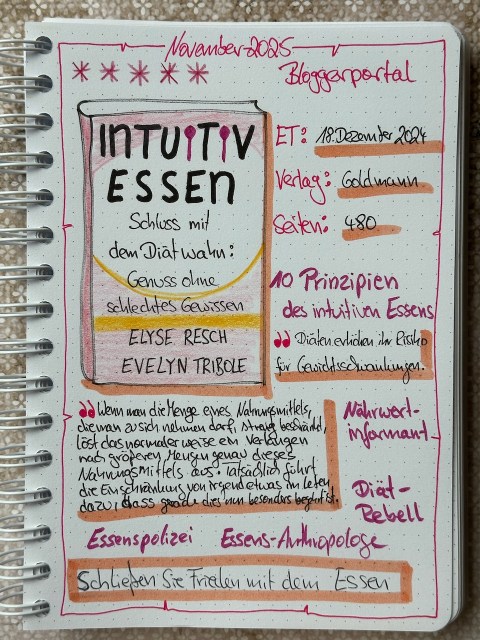 November 2025
Bloggerportal
INTUITIV
ESSEN
Schluss mit
dem Diätwahn:
Genuss ohne
schlechtes Gewissen
ELYSE RESCH
EVELYN TRIBOLE
ET: 18. Dezember 2024
Verlag: Goldmann
Seiten: 480
10 Prinzipien
des intuitiven Essens
Diäten erhöhen ihr Risiko
für Gewichtsschwankungen.
Wenn man die Menge eines Nahrungsmittels,
die man zu sich nehmen darf, streng beschränkt,
löst das normalerweise ein Verlangen
nach größeren Mengen genau dieses
Nahrungsmittels aus. Tatsächlich führt
die Einschränkung von irgend etwas im Leben
dazu, dass gerade dies nun besonders begehrt ist.
Nährwert-
informant
Diät-
Rebell
Essenspolizei Essens-Anthropologe
Schließen Sie Frieden mit dem Essen